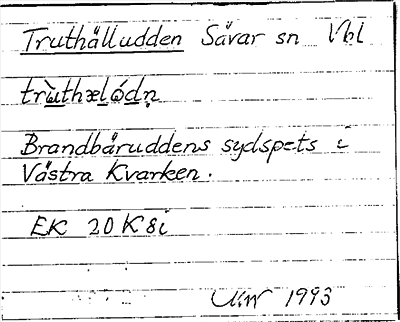 Truthälludden Sävar sn Vbl
trùthælódṇ
Brandbåruddens sydspets i
Västra Kvarken.
EK 20K8i
1993